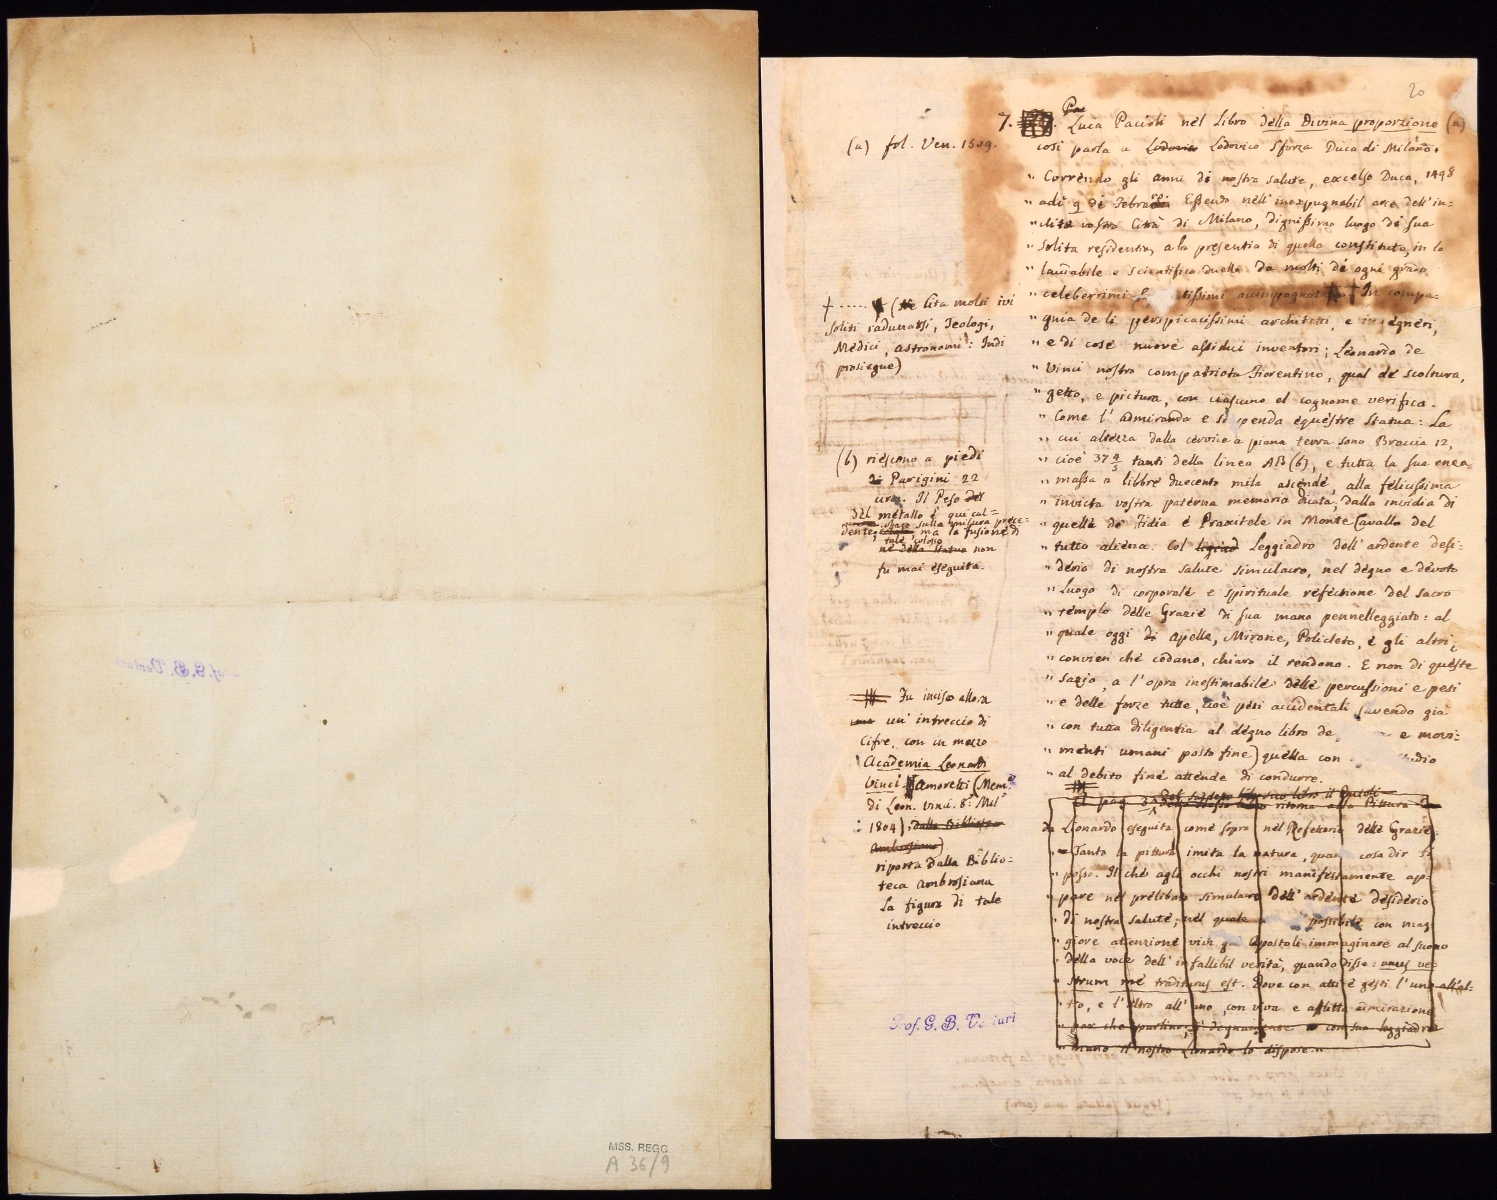 Prof. G. B. Venturi
MSS. REGG.
A 36/9
20
7. Fra
Luca Pacioli nel Libro della Divina proporzione (a)
così parla a Lodovico Lodovico Sforza Duca di Milano.
" Correndo gli anni di nostra salute, excelso Duca, 1498
" adì 9 de Febraro. Essendo nell'inexpugnabil arce dell'in=
" clita vostra Città di Milano, dignissimo luogo di sua
" Solita residentia, a la presentia di quella constituto, in lo
" laudabile e scientifico duello da molti de ogni grado
" celeberrimi e tissimi accompagnata † In compa=
" gnia de li perspicacissimi architetti, e ingegneri,
" e di cose nuove assidui inventori; Leonardo de
" Vinci nostro compatriota Fiorentino, qual de scoltura,
" getto, e pictura, con ciascuno el cognome verifica.
" Come l'admiranda e st penda equestre Statua: La
" cui altezza dalla cervice a piana terra sono Braccia 12,
" cioè 37 4/5 tanti della linea AB (b), e tutta la sua enea
" massa a libbre duecento mila ascende, alla felicissima
" invicta vostra paterna memoria dicata; dalla invidia di
" quelle de Fidia e Praxitele in Monte Cavallo del
" tutto aliena. Col legiad Leggiadro dell'ardente desi=
" derio di nostra salute simulacro, nel degno e devoto
" Luogo di corporale e spirituale refectione del sacro
" templo delle Grazie di sua mano pennelleggiato: al
" quale oggi di Apelle, Mirone, Policleto, e gli altri,
" convien che cedano, chiaro il rendono. E non di queste
" Sazio, a l'opra inestimabile delle percussioni e pesi
" e delle forze tutte, cioè pesi accidentali (avendo già
" con tutta diligentia al degno libro de e movi=
" menti umani posto fine) quella con udio
" al debito fine attende di condurre.
El pag 30 dello stesso libro ritorna alla Pittura
da Lionardo eseguita come sopra nel Refettorio delle Grazie
" Tanto la pittura imita la natura, quan cosa dir si
" posso. Il che agli occhi nostri manifestamente ap=
" pare nel prelibato simulacro dell'ardente desiderio
" di nostra salute, nel quale possibile con mag
" giore attenzione vivi gli Apostoli immaginare al suono
" della voce dell'infallibil verità, quando disse: unus ve=
" strum me traditurus est. Dove con atti e gesti l'uno all'al=
" tro, e l'altro all'uno, con viva e afflitta admirazione
" par che parlino, sì degnamente con sua leggiadra
" mano il nostro Lionardo lo dispose."
(a) fol. Ven. 1509.
†......† (Ne Cita molti ivi
soliti radunarsi, Teologi,
Medici, astronomi: Indi
prosiegue)
(b) riescono a piedi
Parigini 22
circa. Il Peso del
del metallo è qui cal=
colato sulla misura prece=
dente; ma la fusione di
tale colosso
ne della Statua non
fu mai eseguita.
Fu inciso allora
un' intreccio di
Cifre, con in mezzo
Academia Leonardi
Vinci Amoretti (Mem.e
di Leon. Vinci. 8° Mil°
1804), dalla Biblioteca
Ambrosiana)
riporta dalla Biblio=
teca Ambrosiana
La figura di tale
intreccio
Prof. G. B. Venturi